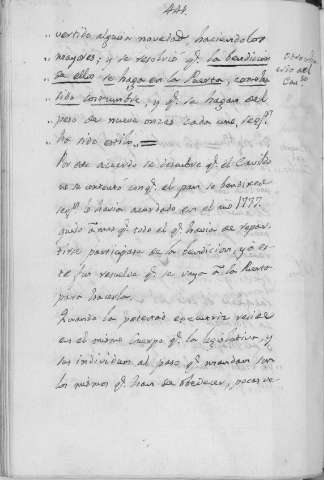 444.
„ vertido alguna novedad, haciendolos
„ mayores; y se resolvió q.e la bendicion
„ de ellos se haga en la Puerta, como ha
„ sido costumbre; y q.e se hagan del
„ peso de nueve onzas cada uno, seg.n
„ ha sido estilo.
Por este acuerdo se descubre q.e el Cavildo
no se contentó con q.e el pan se bendixera
seg.n lo havia acordado en el año 1777.
quiso à mas q.e todo el q.e havia de repar-
tirse participara de la bendicion, y à es-
te fin resuelve q.e se vaya à la Puerta
para hacerlo.
Quando la potestad executriz reside
en el mismo cuerpo q.e la legislativa, y
los individuos al paso q.e mandan son
los mismos q.e han de obedecer, pocas ve-